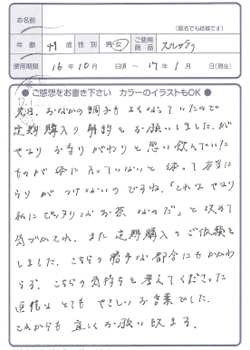 お名前
(匿名でも結構です)
年齢 41才 性別 男・女 ご使用商品 スルッグラク
使用期間 16年10月 日頃〜17年1月(現在)
●ご感想をお書き下さい カラーのイラストもOK●
先日、おなかの調子もよくなっていたので
定期購入の解約をお願いしましたが
やはり お守りがわりと思い飲んでいた
ものが体に入っていないと体って本当に
うりがつけないのですね。「これはやはり
私にピッタリなお茶なのだ」と改めて
気づかされ、また定期購入のご依頼を
しました。こちらの勝手な都合にもかかわ
らず、こちらの気持ちを考えてくださった
返信はとてもやさしいお言葉でした。
これからも宜しくお願い致します。